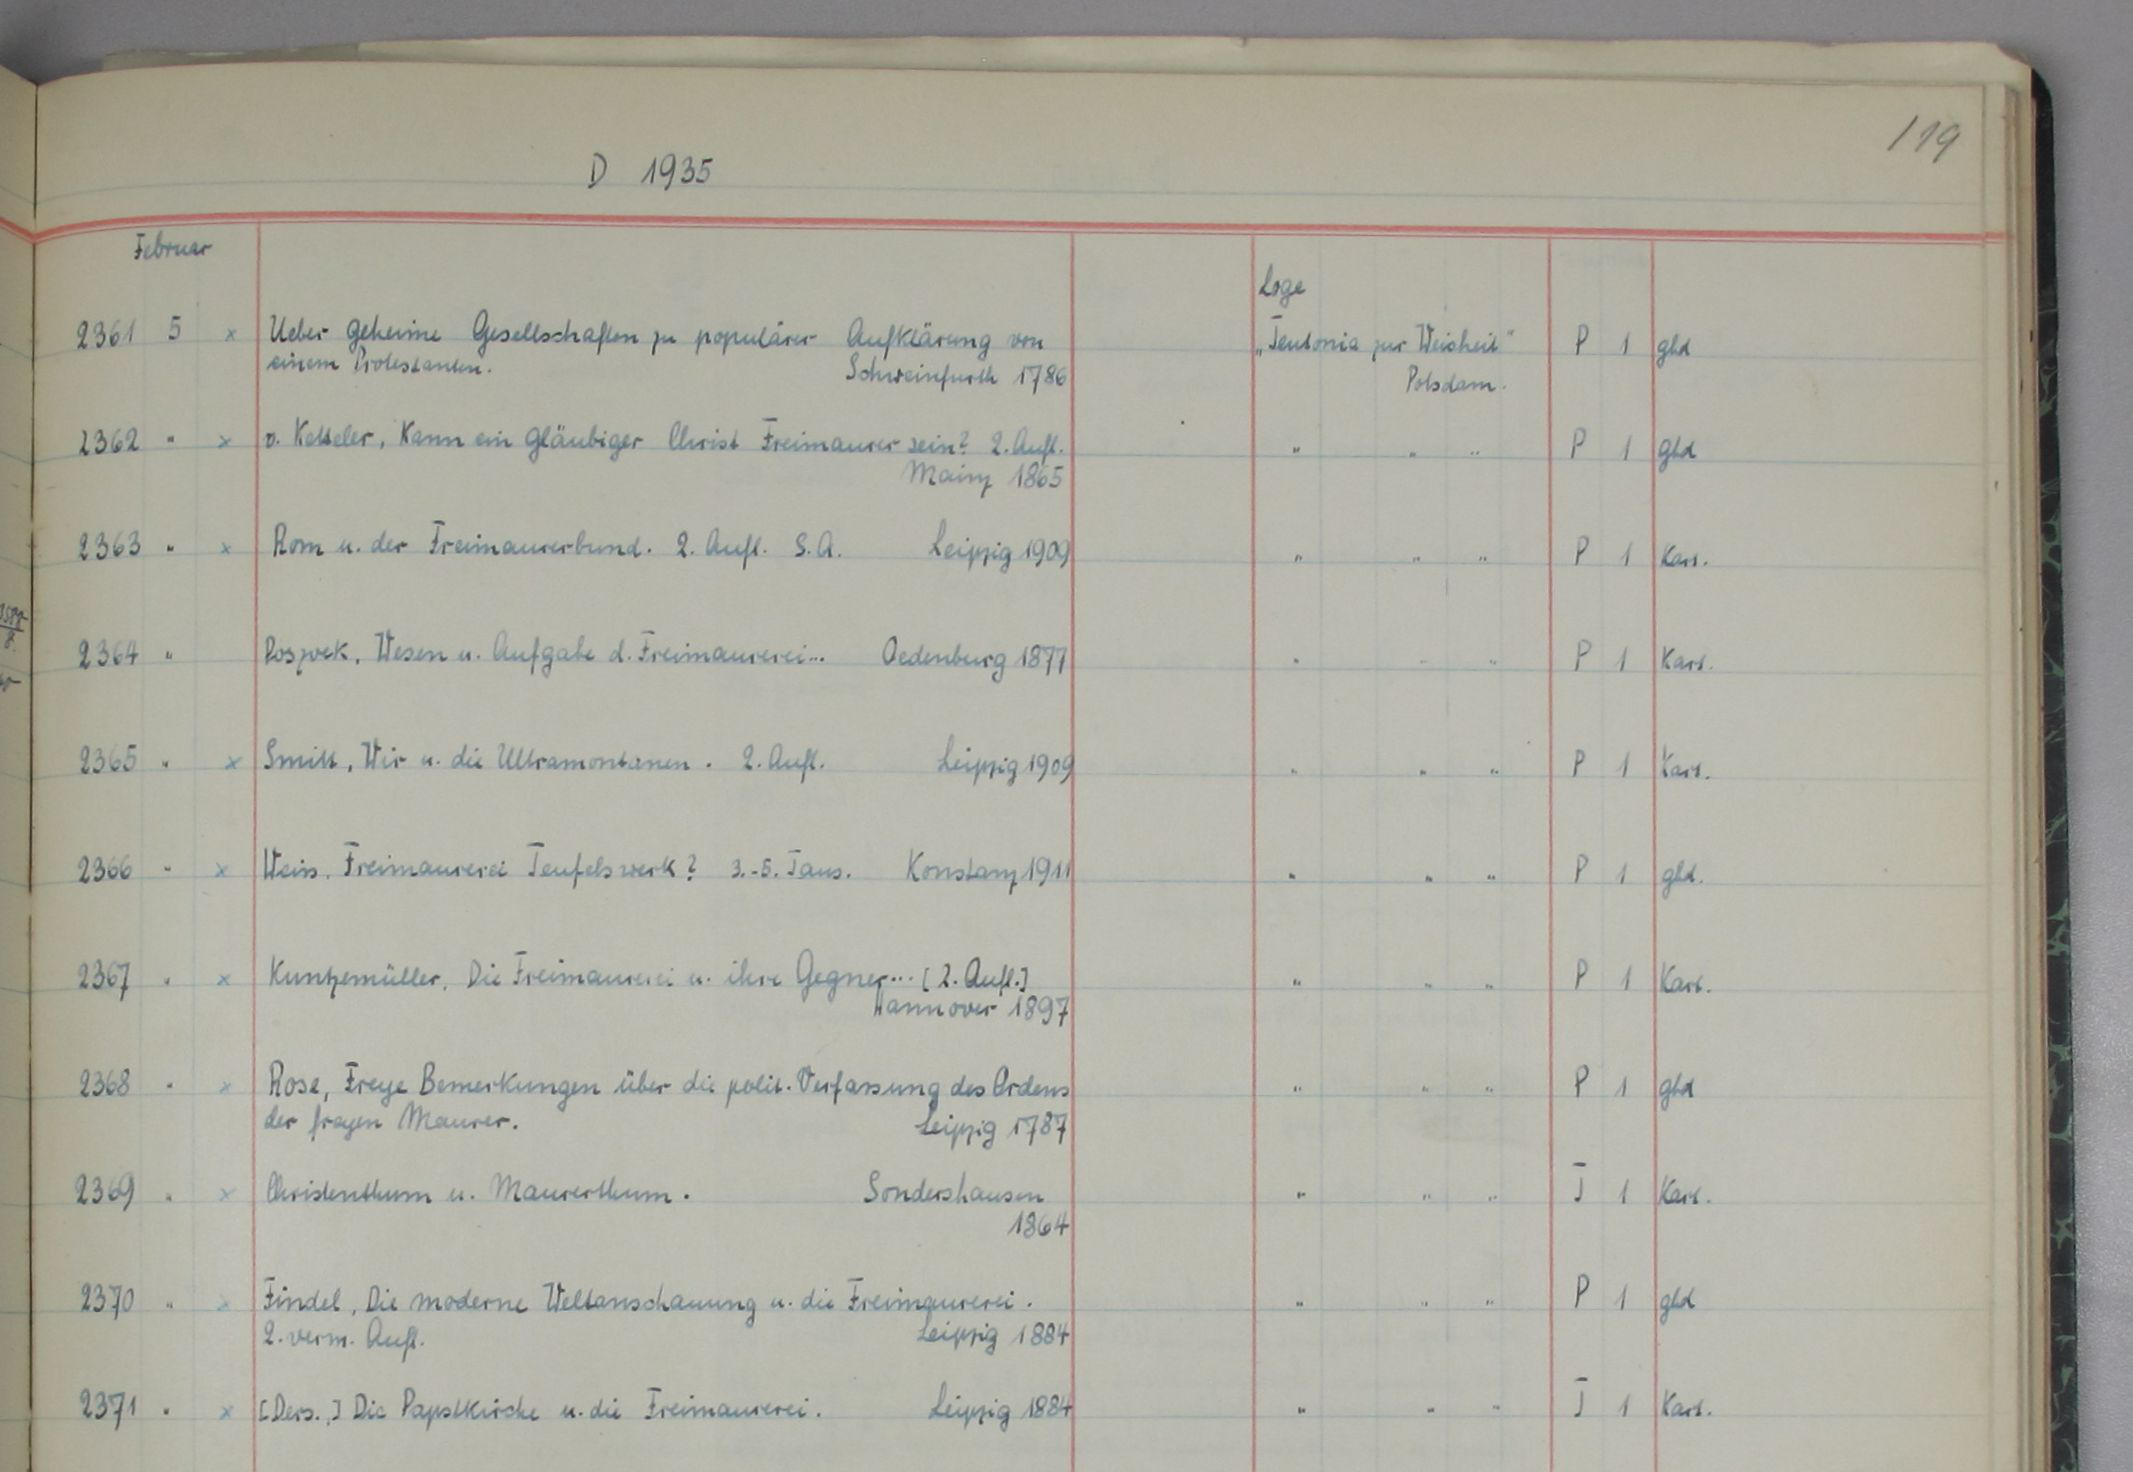 119
D 1935
Februar
Loge
2361 5 x Ueber geheime Gesellschaften zu populärer Aufklärung von „Teutonia zur Weisheit“ P 1 gbd
einem Protestanten. Schweinfurth 1786 Potsdam.
2362 " x v. Ketteler, Kann ein gläubiger Christ Freimaurer sein? 2. Aufl. " " " P 1 gbd
Mainz 1865
2363 " x Rom u. der Freimaurerbund. 2. Aufl. S.A. Leipzig 1909 " " " P 1 Kart.
2364 " Poszvek, Wesen u. Aufgabe d. Freimaurerei... Oedenburg 1877 " " " P 1 Kart.
2365 " x Smitt, Wir u. die Ultramontanen. 2. Aufl. Leipzig 1909 " " " P 1 Kart.
2366 " x Weiss, Freimaurerei Teufelswerk? 3.-5. Taus. Konstanz 1911 " " " P 1 gbd.
2367 " x Kuntzemüller, Die Freimaurerei u. ihre Gegner... [2. Aufl.] " " " P 1 Kart.
Hannover 1897
2368 " x Rose, Freye Bemerkungen über die polit. Verfassung des Ordens " " " P 1 gbd
der freyen Maurer. Leipzig 1787
2369 " x Christenthum u. Maurerthum. Sondershausen " " " J 1 Kart.
1864
2370 " x Findel, Die moderne Weltanschauung u. die Freimaurerei. " " " P 1 gbd
2. verm. Aufl. Leipzig 1884
2371 " x [Ders.,] Die Papstkirche u. die Freimaurerei. Leipzig 1884 " " " J 1 Kart.